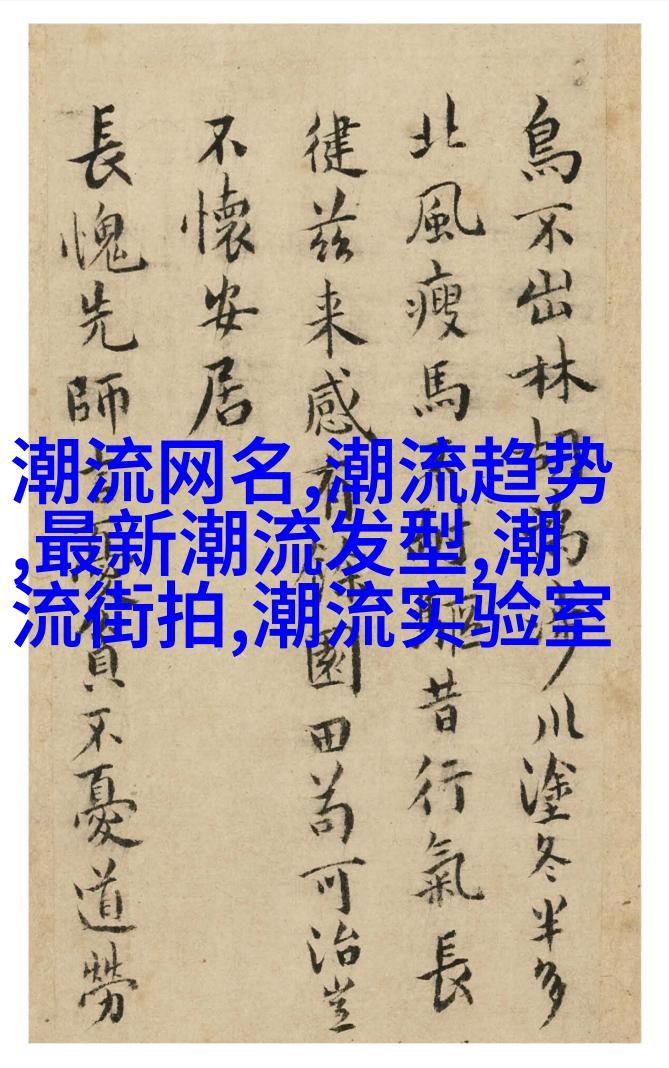 鳥不出林胡為川塗冬半多
北風瘦馬驅昔行氣長
徤兹来感有園田苟可治豈
不懷安居
長愧先師貧不憂道勞
潮流网名,潮流趋势
,最新潮流发型,潮
流街拍,潮流实验室